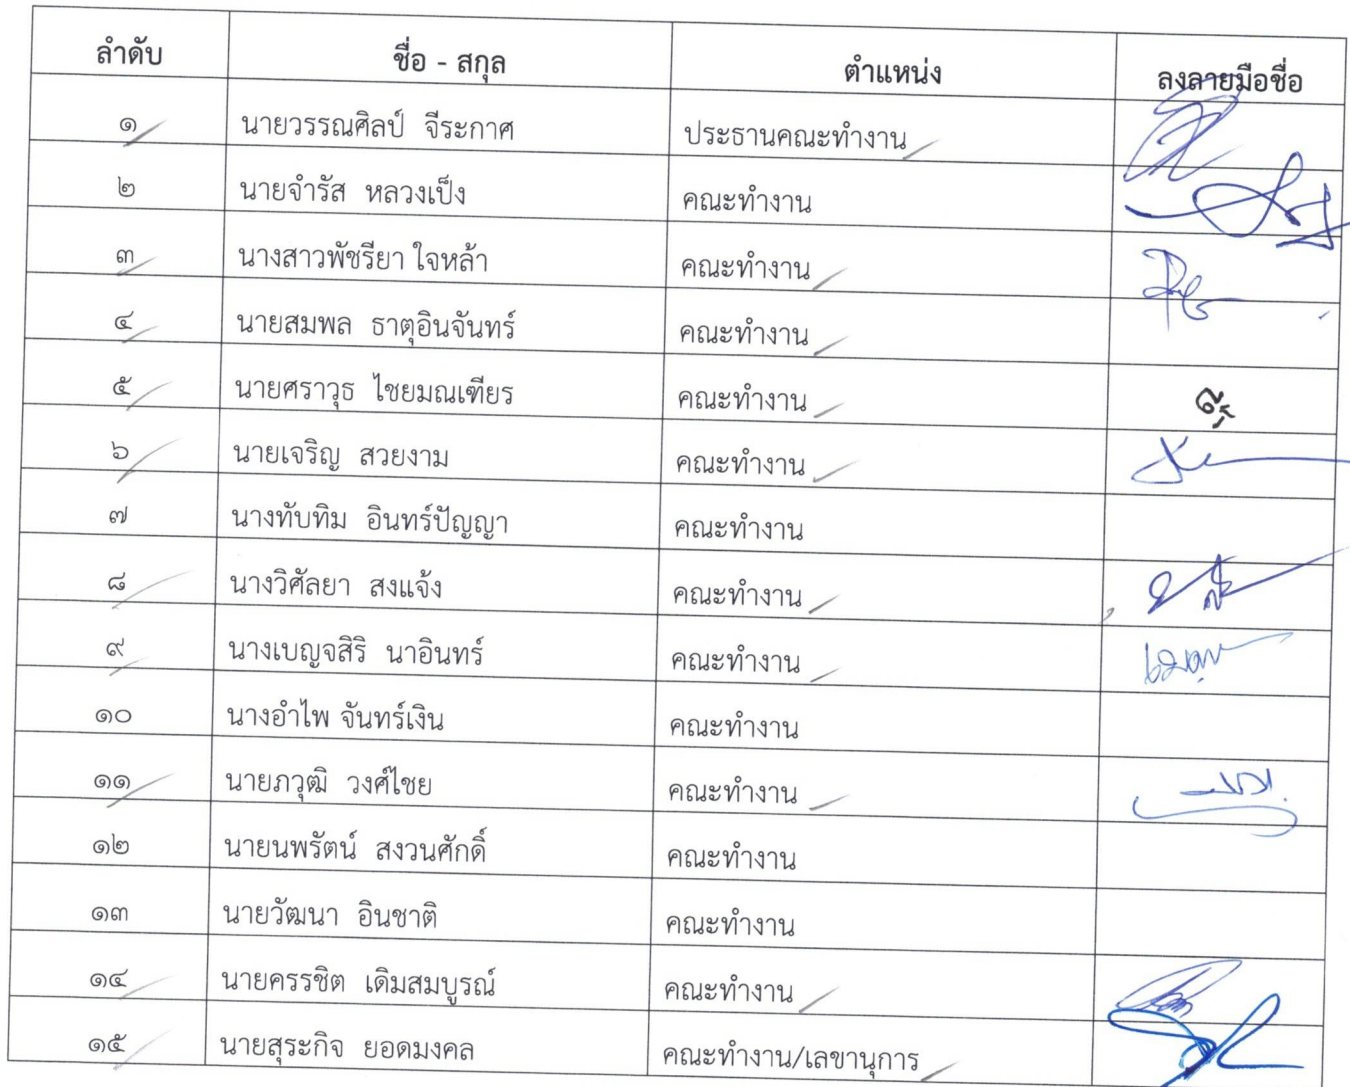 ลำดับ ชื่อ - สกุล ตำแหน่ง ลงลายมือชื่อ
๑ นายวรรณศิลป์ จีระกาศ ประธานคณะทำงาน
๒ นายจำรัส หลวงเป็ง คณะทำงาน
๓ นางสาวพัชรียา ใจหล้า คณะทำงาน
๔ นายสมพล ธาตุอินจันทร์ คณะทำงาน
๕ นายศราวุธ ไชยมณเฑียร คณะทำงาน
๖ นายเจริญ สวยงาม คณะทำงาน
๗ นางทับทิม อินทร์ปัญญา คณะทำงาน
๘ นางวิศัลยา สงแจ้ง คณะทำงาน
๙ นางเบญจสิริ นาอินทร์ คณะทำงาน
๑๐ นางอำไพ จันทร์เงิน คณะทำงาน
๑๑ นายภวุฒิ วงศ์ไชย คณะทำงาน
๑๒ นายนพรัตน์ สงวนศักดิ์ คณะทำงาน
๑๓ นายวัฒนา อินชาติ คณะทำงาน
๑๔ นายครรชิต เดิมสมบูรณ์ คณะทำงาน
๑๕ นายสุระกิจ ยอดมงคล คณะทำงาน/เลขานุการ